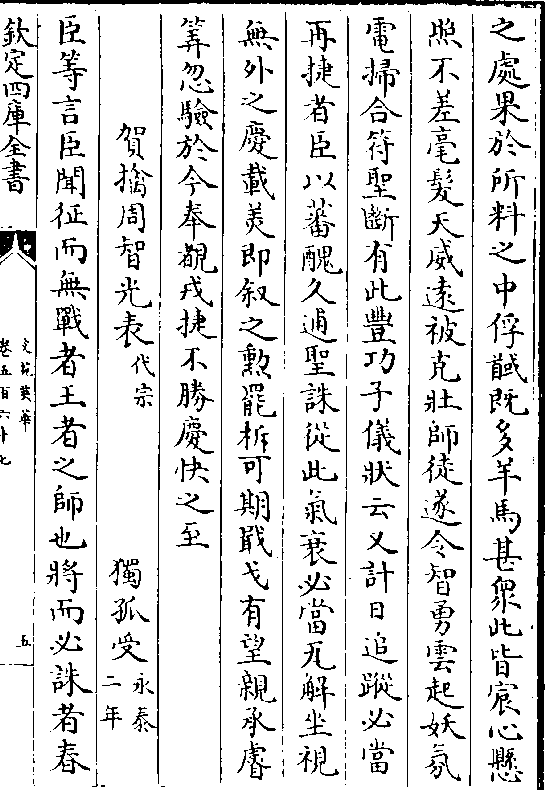 之處果於所料之中俘馘既多羊馬甚衆此皆宸心懸
照不差毫髮天威遠被克壯師徒遂令智勇雲起妖氛
電掃合符聖斷有此豐功子儀狀云又計日追蹤必當
再捷者臣以蕃醜久逋聖誅從此氣衰必當瓦解坐視
無外之慶載美即叙之勲罷柝可期戢戈有望親承睿
筭忽驗於今奉覩戎捷不勝慶快之至
賀擒周智光表代宗 獨孤受永泰二年
臣等言臣聞征而無戰者王者之師也將而必誅者春
欽定四庫全書
文苑英華
卷五百六十七
五